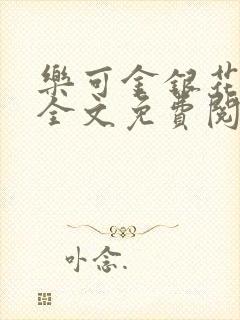 樂可金銀花
全文免費閱
卟念.